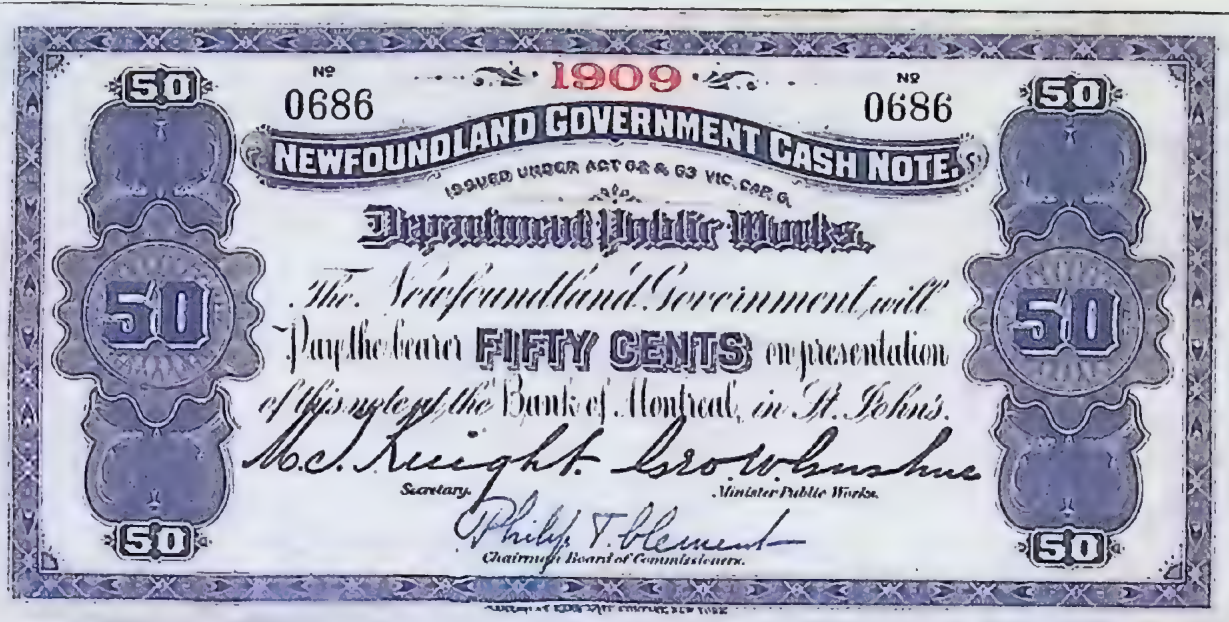 50 Nº 1909 Nº 50
0686 0686
NEWFOUNDLAND GOVERNMENT CASH NOTE.
ISSUED UNDER ACT 62 & 63 VIC. CAP 6.
Department Public Works.
The Newfoundland Government will
50 Pay the bearer FIFTY CENTS on presentation 50
of this note at the Bank of Montreal, in St. John's.
M.J. Knight. Geo W Gushue
Secretary. Minister Public Works.
Philip T. Clement
50 Chairman Board of Commissioners. 50
COMPANY, NEW YORK